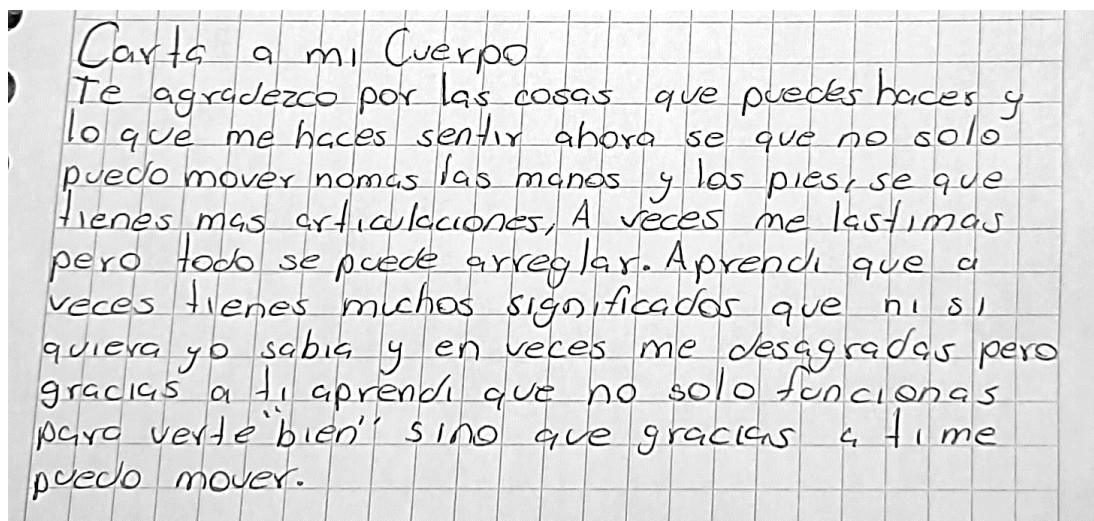 Carta a mi Cuerpo
Te agradezco por las cosas que puedes hacer y
lo que me haces sentir ahora se que no solo
puedo mover nomas las manos y los pies, se que
tienes mas articulaciones, A veces me lastimas
pero todo se puede arreglar. Aprendi que a
veces tienes muchos significados que ni si
quiera yo sabia y en veces me desagradas pero
gracias a ti aprendi que no solo funcionas
para verte "bien" sino que gracias a ti me
puedo mover.